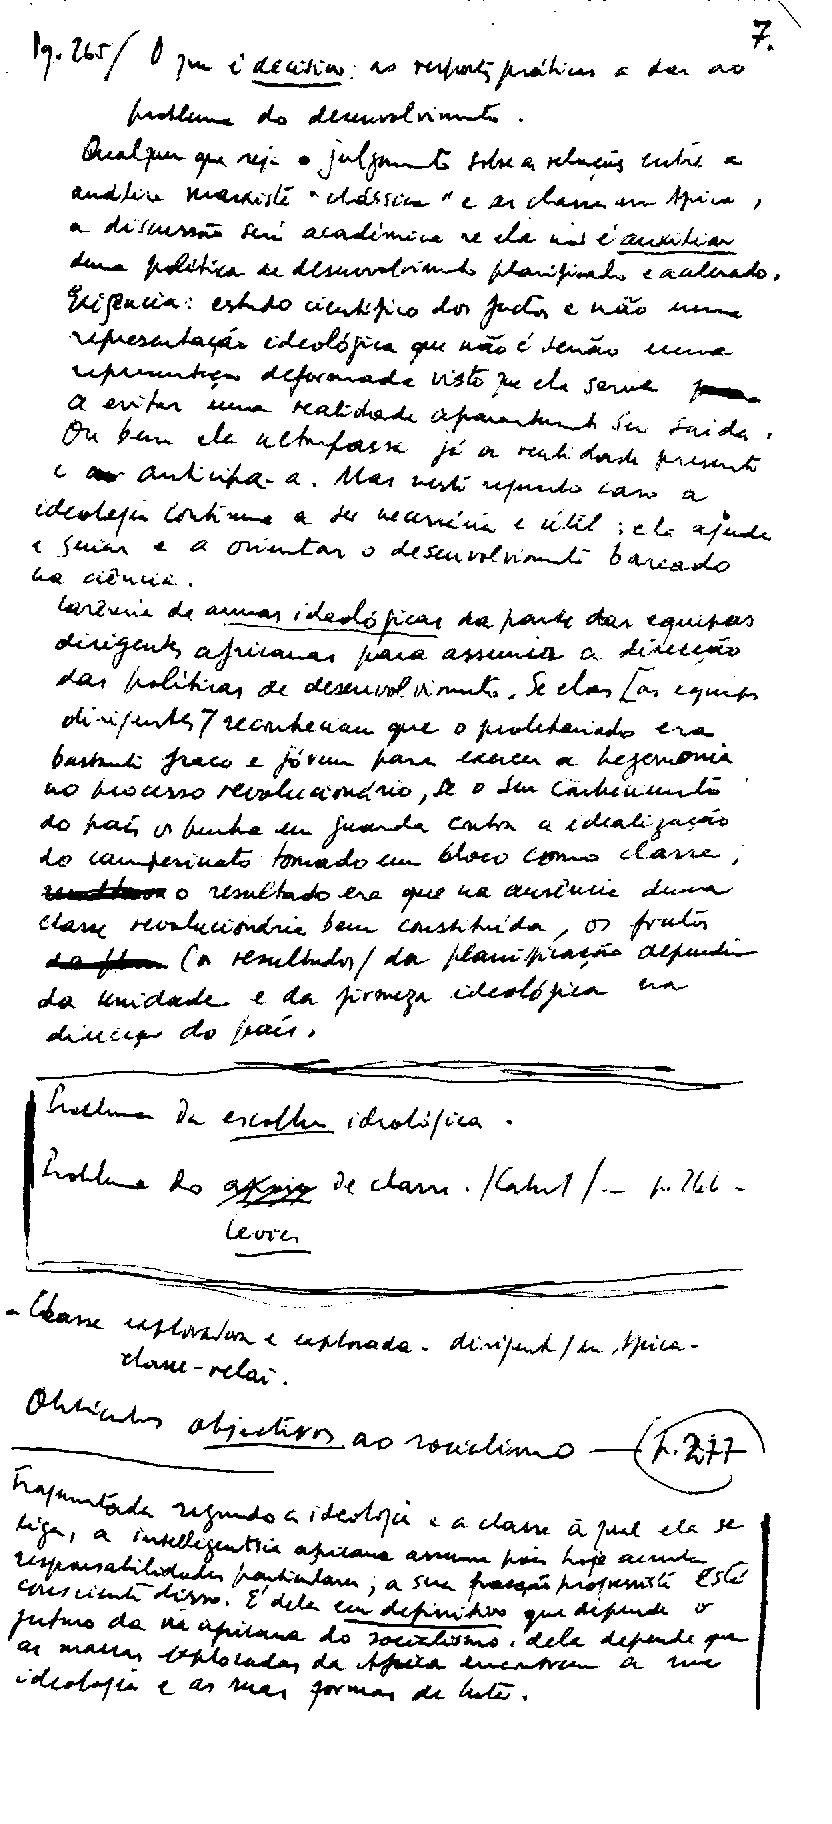 7.
Pg. 265/ O que é decisivo: as respostas práticas a dar ao
problema do desenvolvimento.
Qualquer que seja o julgamento sobre as relações entre a
análise marxista "clássica" e as classes em África,
a discussão será académica se ela não é auxiliar
duma política de desenvolvimento planificado e acelerado.
Exigência: estudo científico dos factos e não uma
representação ideológica que não é senão uma
representação deformada visto que ela serve
a evitar uma realidade aparentemente sem saída.
Ou bem ela ultrapassa já a realidade presente
e antecipa-a. Mas neste segundo caso a
ideologia continua a ser necessária e útil; ela ajuda
a guiar e a orientar o desenvolvimento baseado
na ciência.
Carência de armas ideológicas da parte das equipas
dirigentes africanas para assumir a direcção
das políticas de desenvolvimento. Se elas [as equipas
dirigentes] reconheciam que o proletariado era
bastante fraco e jóvem para exercer a hegemonia
no processo revolucionário, se o seu conhecimento
do país os punha em guarda contra a idealização
do campesinato tomado em bloco como classe,
o resultado era que na ausência duma
classe revolucionária bem constituída, os frutos
(os resultados) da planificação dependiam
da unidade e da firmeza ideológica na
direcção do país.
Problema da escolha ideológica.
Problema do de classe. - p. 266 -
- Classe exploradora e explorada. dirigente/em África-
classe-relai.
Obstáculos objectivos ao socialismo — p. 277
Fragmentada segundo a ideologia e a classe à qual ela se
liga, a intelligentsia africana assume pois hoje
responsabilidades particulares; a sua fracção progressista está
consciente disso. É dela em definitivo que depende o
futuro da via africana do socialismo. dela depende que
as massas exploradas da África encontrem a sua
ideologia e as suas formas de luta.